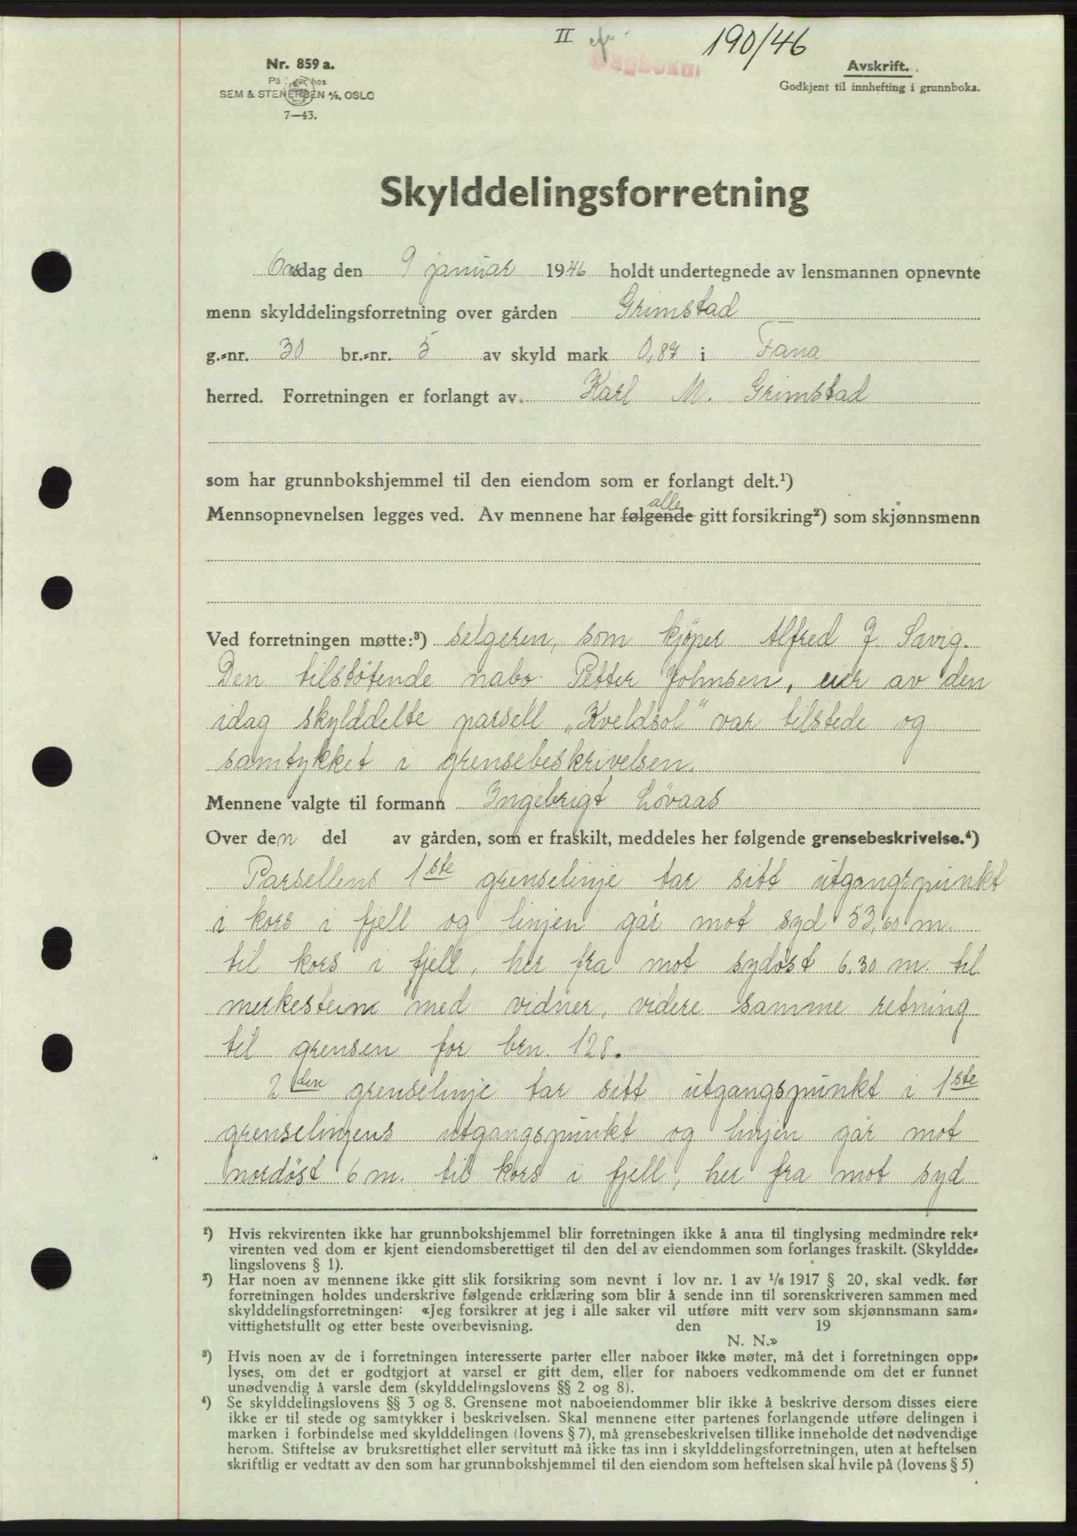 II
190/46
Nr. 859 a.
På hos
SEM & STENERSEN A/S, OSLO
7—43.
Avskrift.
Godkjent til innhefting i grunnboka.
Skylddelingsforretning
Onsdag den 9 januar 1946 holdt undertegnede av lensmannen opnevnte
menn skylddelingsforretning over gården Grimstad
g.-nr. 30 br.-nr. 5 av skyld mark 0,87 i Fana
herred. Forretningen er forlangt av Karl M. Grimstad
som har grunnbokshjemmel til den eiendom som er forlangt delt.¹)
alle
Mennsopnevnelsen legges ved. Av mennene har følgende gitt forsikring²) som skjønnsmenn
Ved forretningen møtte:³) selgeren, som kjøper Alfred J. Savig.
Den tilstøtende nabo Petter Johnsen, eier av den
idag skylddelte parsell „Kveldsol" var tilstede og
samtykket i grensebeskrivelsen.
Mennene valgte til formann Ingebrigt Løvaas
Over den del av gården, som er fraskilt, meddeles her følgende grensebeskrivelse.⁴)
Parsellens 1ste grenselinje tar sitt utgangspunkt
i kors i fjell og linjen går mot syd 53,60 m.
til kors i fjell, her fra mot sydøst 6.30 m. til
merkestein med vidner, videre samme retning
til grensen for brn. 128.
2den grenselinje tar sitt utgangspunkt i 1ste
grenselinjens utgangspunkt og linjen går mot
nordøst 6 m. til kors i fjell, her fra mot syd
¹) Hvis rekvirenten ikke har grunnbokshjemmel blir forretningen ikke å anta til tinglysing medmindre rek-
virenten ved dom er kjent eiendomsberettiget til den del av eiendommen som forlanges fraskilt. (Skyldde-
lingslovens § 1).
²) Har noen av mennene ikke gitt slik forsikring som nevnt i lov nr. 1 av 1/6 1917 § 20, skal vedk. før
forretningen holdes underskrive følgende erklæring som blir å sende inn til sorenskriveren sammen med
skylddelingsforretningen: «Jeg forsikrer at jeg i alle saker vil utføre mitt verv som skjønnsmann sam-
vittighetsfullt og etter beste overbevisning. den 19
N. N.»
³) Hvis noen av de i forretningen interesserte parter eller naboer ikke møter, må det i forretningen opp-
lyses, om det er godtgjort at varsel er gitt dem, eller for naboers vedkommende om det er funnet
unødvendig å varsle dem (skylddelingslovens §§ 2 og 8).
⁴) Se skylddelingslovens §§ 3 og 8. Grensene mot naboeiendommer blir ikke å beskrive dersom disses eiere
ikke er til stede og samtykker i beskrivelsen. Skal mennene etter partenes forlangende utføre delingen i
marken i forbindelse med skylddelingen (lovens § 7), må grensebeskrivelsen tillike inneholde det nødvendige
herom. Stiftelse av bruksrettighet eller servitutt må ikke tas inn i skylddelingsforretningen, uten at heftelsen
skriftlig er vedtatt av den som har grunnbokshjemmel til den eiendom som heftelsen skal hvile på (lovens § 5)